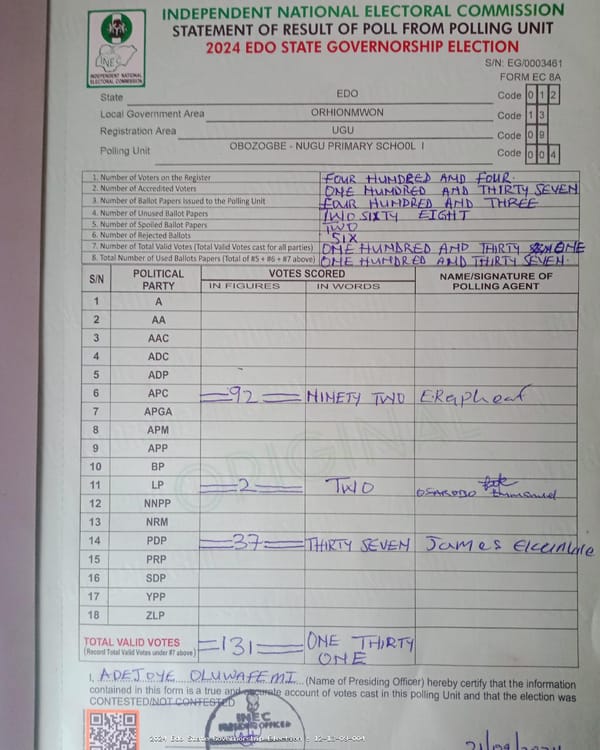 INDEPENDENT NATIONAL ELECTORAL COMMISSION
STATEMENT OF RESULT OF POLL FROM POLLING UNIT
2024 EDO STATE GOVERNORSHIP ELECTION
INEC
INDEPENDENT NATIONAL
ELECTORAL COMMISSION
S/N: EG/0003461
FORM EC 8A
State EDO Code 0 1 2
Local Government Area ORHIONMWON Code 1 3
Registration Area UGU Code 0 9
Polling Unit OBOZOGBE - NUGU PRIMARY SCHOOL I Code 0 0 4
1. Number of Voters on the Register FOUR HUNDRED AND FOUR.
2. Number of Accredited Voters ONE HUNDRED AND THIRTY SEVEN
3. Number of Ballot Papers Issued to the Polling Unit FOUR HUNDRED AND THREE
4. Number of Unused Ballot Papers TWO SIXTY EIGHT
5. Number of Spoiled Ballot Papers TWO
6. Number of Rejected Ballots SIX
7. Number of Total Valid Votes (Total Valid Votes cast for all parties) ONE HUNDRED AND THIRTY ONE
8. Total Number of Used Ballots Papers (Total of #5 + #6 + #7 above) ONE HUNDRED AND THIRTY SEVEN.
S/N POLITICAL PARTY VOTES SCORED NAME/SIGNATURE OF POLLING AGENT
IN FIGURES IN WORDS
1 A
2 AA
3 AAC
4 ADC
5 ADP
6 APC =92= NINETY TWO
7 APGA
8 APM
9 APP
10 BP
11 LP =2= TWO OSAROBO Emmanuel
12 NNPP
13 NRM
14 PDP =37= THIRTY SEVEN James
15 PRP
16 SDP
17 YPP
18 ZLP
ORIGINAL
TOTAL VALID VOTES =131= ONE THIRTY
(Record Total Valid Votes under #7 above) ONE
I, ADEJOYE OLUWAFEMI (Name of Presiding Officer) hereby certify that the information
contained in this form is a true and accurate account of votes cast in this polling Unit and that the election was
CONTESTED/NOT CONTESTED
INEC
PRESIDING OFFICER
2024 Edo State Governorship Election : 12-13-09-004